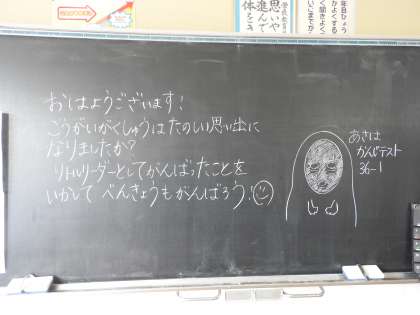 おはようございます!
こうがいがくしゅうはたのしい思い出に
なりましたか?
リトルリーダーとしてがんばったことを
いかして べんきょうもがんばろう!
あさは
かん字テスト
36-1
思いや
進んで
体を